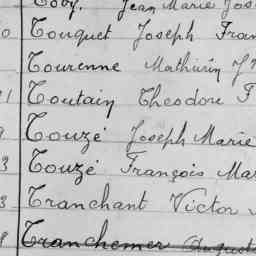 Jean Marie Jos
0 Touquet Joseph Fran
Tourenne Mathurin
1 Toutain Theodore F
9 Touzé Joseph Marie
3 Touzé François Mar
3 Tranchant Victor
8 Tranchemer August